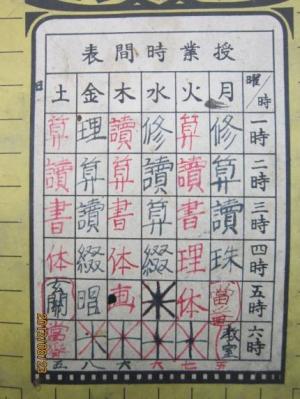 授業時間表
曜/時 月 火 水 木 金 土 日
一時 修 算 修 讀 理 算
二時 算 讀 讀 算 算 讀
三時 讀 書 算 書 讀 書
四時 珠 理 綴 体 綴 体
五時 体 画 玄關
六時 教室